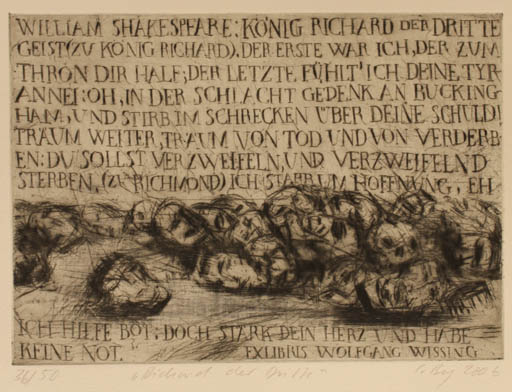 WILLIAM SHAKESPEARE: KÖNIG RICHARD DER DRITTE
GEIST (ZU KÖNIG RICHARD), DER ERSTE WAR ICH, DER ZUM
THRON DIR HALF; DER LETZTE FÜHLT' ICH DEINE TYR-
ANNEI: OH, IN DER SCHLACHT GEDENK AN BUCKING-
HAM, UND STIRB IM SCHRECKEN ÜBER DEINE SCHULD!
TRAUM WEITER, TRAUM VON TOD UND VON VERDERB-
EN: DU SOLLST VERZWEIFELN, UND VERZWEIFELND
STERBEN, (ZU RICHMOND) ICH STARB UM HOFFNUNG, EH
ICH HILFE BOT; DOCH STÄRK DEIN HERZ UND HABE
KEINE NOT." EXLIBRIS WOLFGANG WISSING
36/50 "Richard der Dritte" 2006